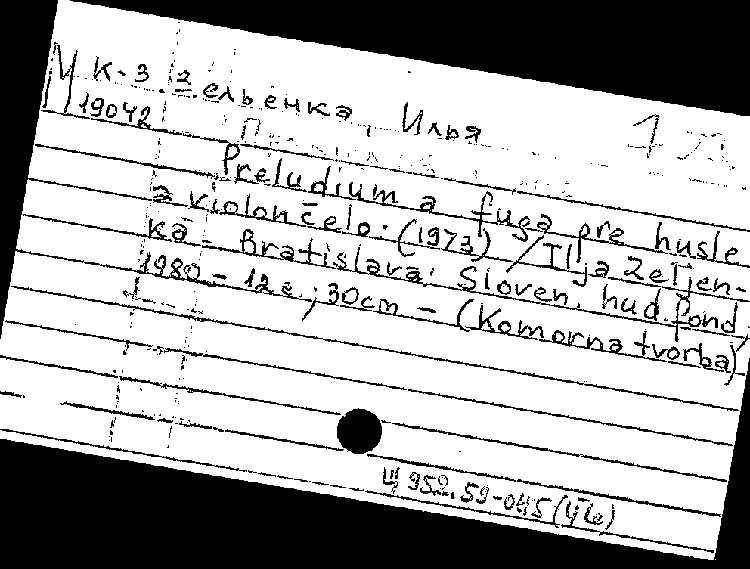 К-3 Зельенка, Илья
М 19042
Preludium a fuga pre husle
a violončelo. (1973) / Ilja Zeljen-
ka - Bratislava: Sloven. hud. fond,
1980 - 12 c.; 30 cm - (Komorna tvorba)
Щ 952.59-045 (4Че)